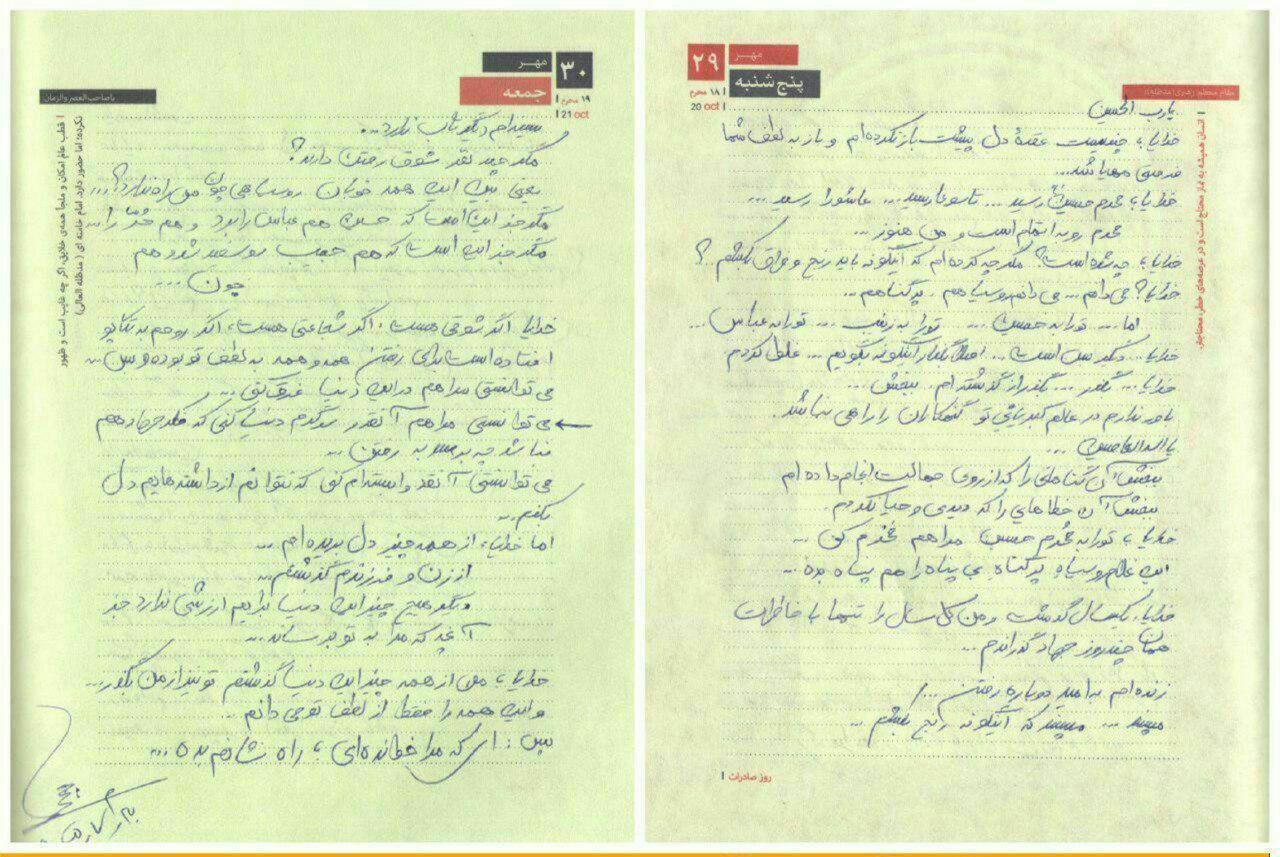 ۲۹
مهر
پنج شنبه
۱۸ محرم
20 oct
مقام معظم رهبری (مدظله):
انسان همیشه به نماز محتاج است و در عرصه‌های خطر، محتاج‌تر
یا رب الحسین
خدایا، چندیست عقدهٔ دل پیشت باز نکرده‌ام و باز به لطف شما
فرصتی مهیا شد...
خدایا، محرم حسین رسید ... تاسوعا رسید ... عاشورا رسید ...
محرم رو به اتمام است و من هنوز ...
خدایا، چه شده است؟ مگر چه کرده‌ام که اینگونه باید رنج و فراق بکشم..؟
خدایا؟ می دانم ... می دانم روسیاهم، پر گناهم...
اما ... تو را به حسین ... تو را به زینب ... تو را به عباس ...
خدایا ... دیگر بس است ... اصلاً بگذار اینگونه بگویم ... غلط کردم
خدایا ... بگذر ... بگذر از گذشته‌ام. ببخش ...
باور ندارم در عالم کبریایی تو گنهکاران را راهی نباشد.
یا اله العاصین ...
ببخش آن گناهانی را که از روی جهالت انجام داده ام
ببخش آن خطاهایی را که دیدی و حیا نکردم
خدایا، تو را به مُحرم حسین مرا هم مَحرم کن ...
این غلام روسیاه پر گناه بی پناه را هم پناه بده ...
خدایا، یکسال گذشت و من کل سال را تنها با خاطرات
همان چند روز جهاد گذراندم ...
زنده‌ام به امید دوباره رفتن ...
مپسند ... مپسند که اینگونه رنج بکشم ...
روز صادرات
۳۰
مهر
جمعه
۱۹ محرم
21 oct
یا صاحب العصر والزمان
قطب عالم امکان و ملجأ همه‌ی خلایق، اگر چه غایب است و ظهور
نکرده؛ اما حضور دارد. امام خامنه ای (مدظله العالی)
سینه‌ام دیگر تاب ندارد...
مگر چند نفر شوق رفتن دارند؟
یعنی بین این همه خوبان روسیاهی چون من راه ندارد؟...
مگر جز این است که حسین هم عباس را برد و هم حُر را...
مگر جز این است که هم حبیب رو سفید شد و هم
جون ....
خدایا اگر شوقی هست، اگر شجاعتی هست، اگر روحم به تکاپو
افتاده است برای رفتن همه و همه به لطف تو بوده و بس...
می توانستی مرا هم در این دنیا غرق کنی...
می توانستی مرا هم آنقدر سرگرم دنیا کنی که فکر جهاد هم
نباشد چه برسد به رفتن ...
می توانستی آنقدر وابسته‌ام کنی که نتوانم از داشته‌هایم دل
بکنم...
اما خدایا، از همه چیز دل بریده‌ام ...
از زن و فرزندم گذشتم...
دیگر هیچ چیز این دنیا برایم ارزشی ندارد جز
آنچه که مرا به تو برساند...
خدایا، من از همه چیز این دنیا گذشتم تو نیز از من بگذر...
و این همه را فقط از لطف تو می دانم...
پس: ای که مرا خوانده‌ای، راه نشانم بده ...